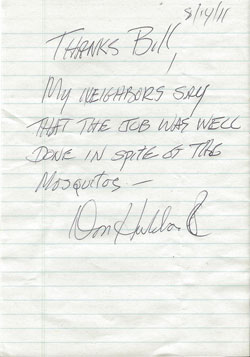 8/14/11
THANKS BILL,
MY NEIGHBORS SAY
THAT THE JOB WAS WELL
DONE IN SPITE OF THE
MOSQUITOS —
Don